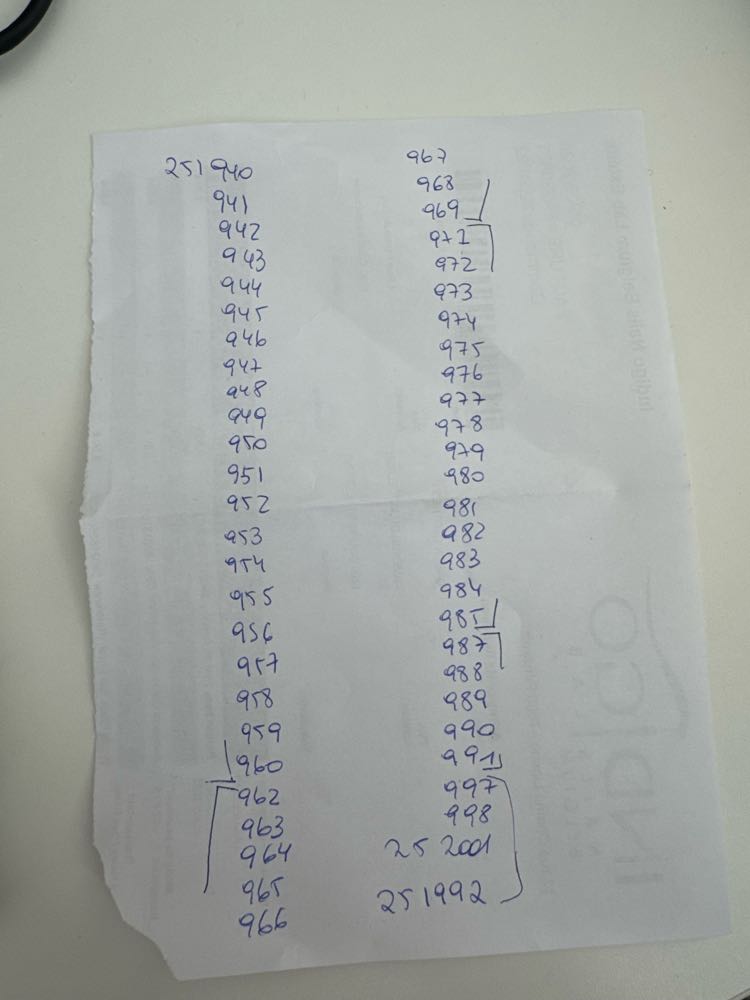 251940
941
942
943
944
945
946
947
948
949
950
951
952
953
954
955
956
957
958
959
960
962
963
964
965
966
967
968
969
971
972
973
974
975
976
977
978
979
980
981
982
983
984
985
987
988
989
990
991
997
998
25 2001
251992
INDIGO